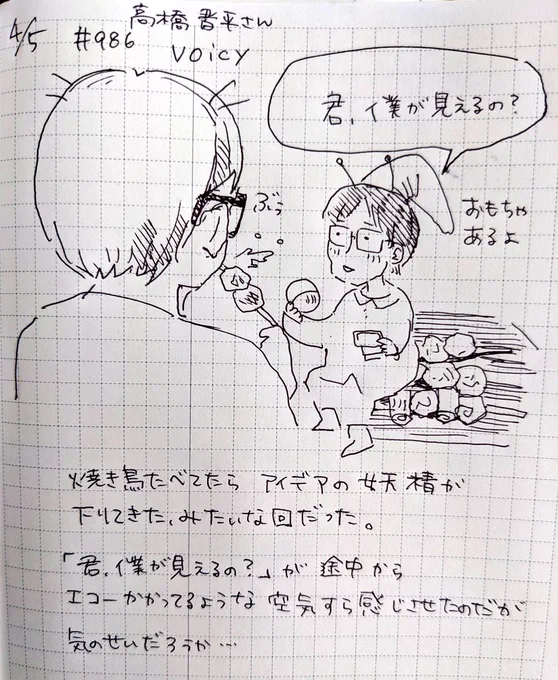 4/5 #986 高橋晋平さん
voicy
君、僕が見えるの?
ぶぅ
おもちゃ
あるよ
焼き鳥たべてたら アイデアの妖精が
下りてきた、みたいな回だった。
「君、僕が見えるの?」が 途中から
エコーかかってるような 空気すら感じさせたのだが
気のせいだろうか…